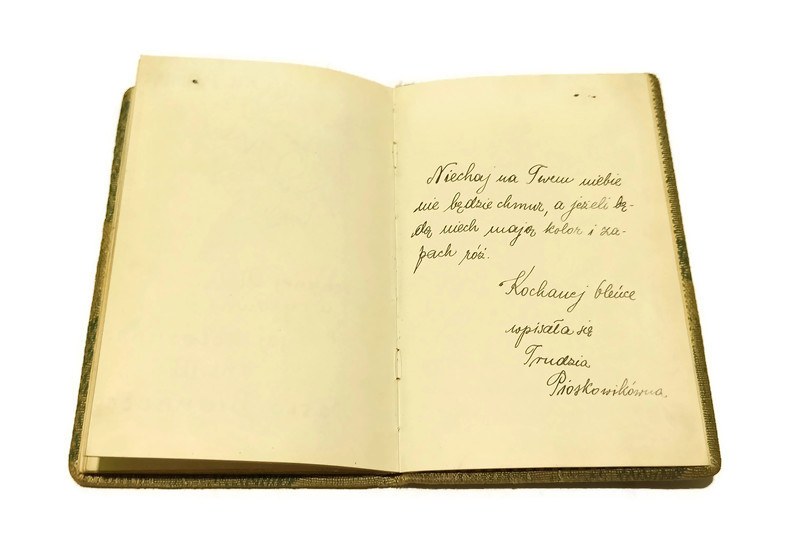 Niechaj na Twem niebie
nie będzie chmur, a jeżeli bę-
dą niech mają kolor i za-
pach róż.
Kochanej Oleńce
wpisała się
Trudzia